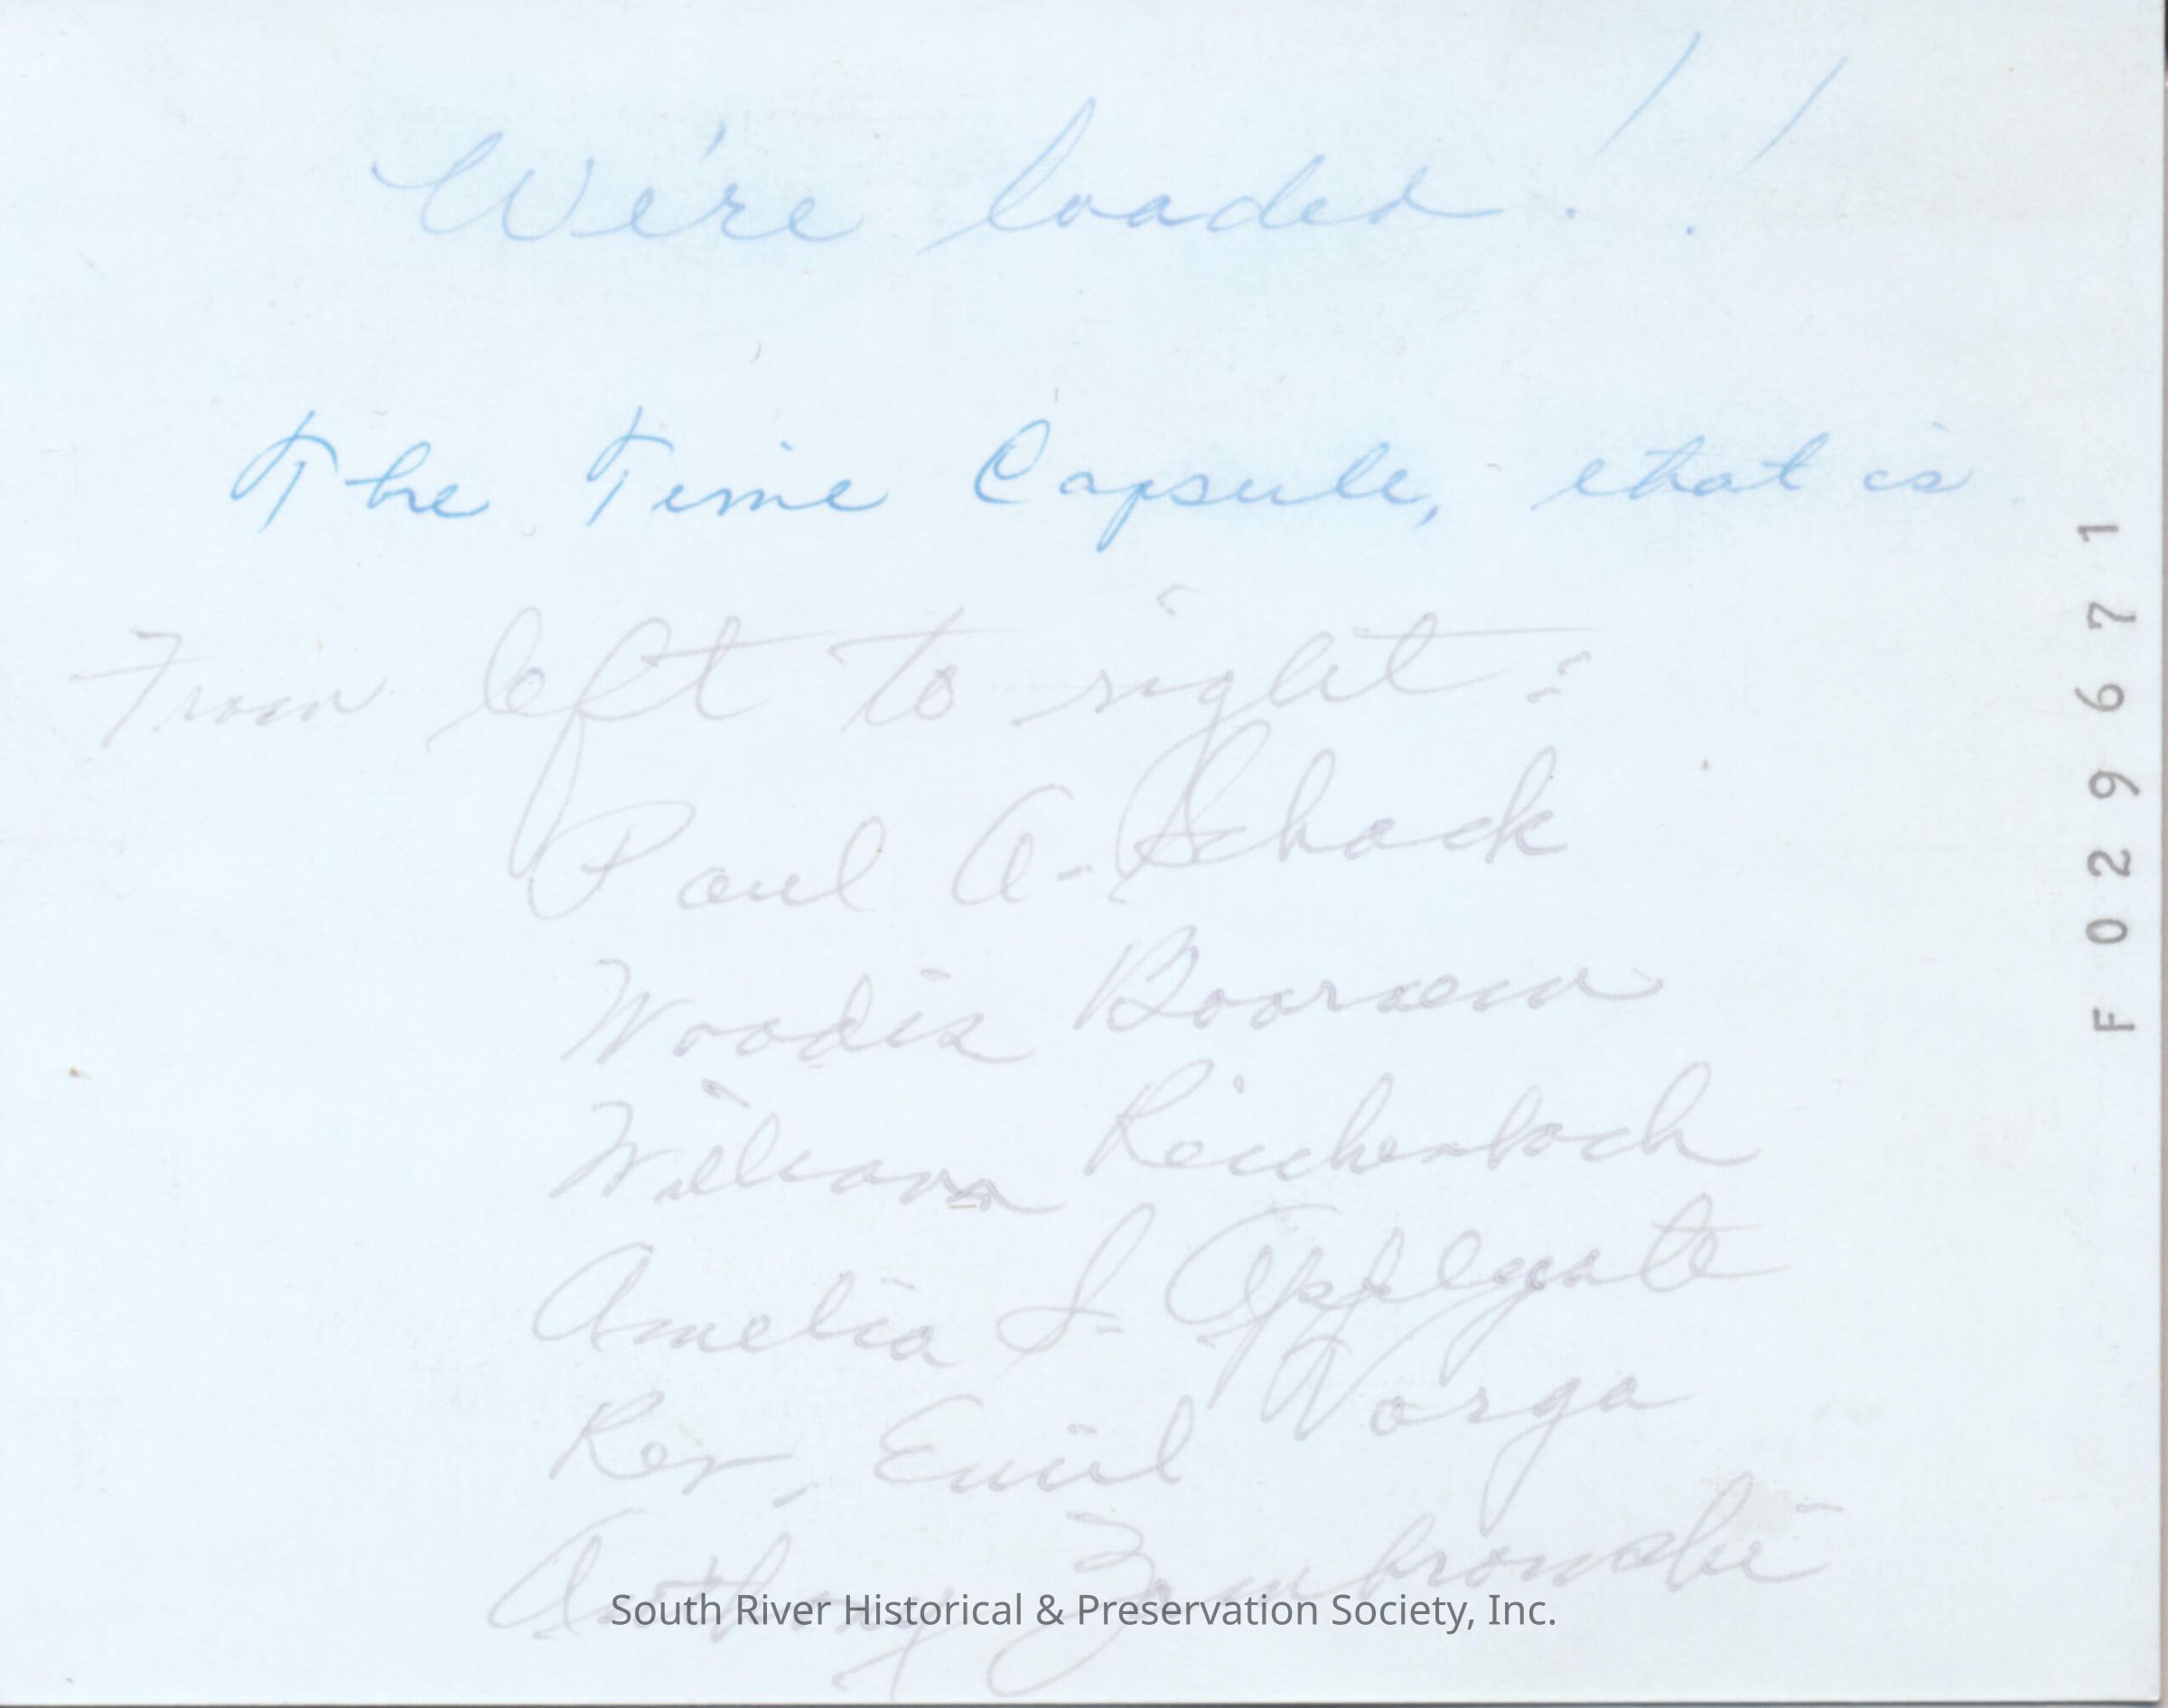 We're loaded!!
The Time Capsule, that is
From left to right:
Paul A. Schack
Woodie Booraem
William Reichenbach
Amelia S. Applegate
Rev. Emil Varga
Anthony Zembronski
South River Historical & Preservation Society, Inc.
F029671